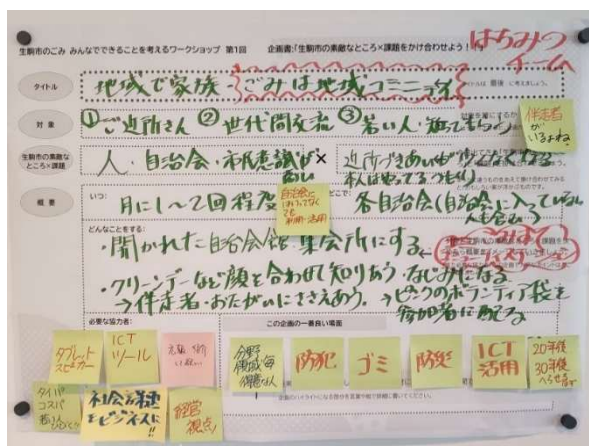 生駒市のごみ みんなでできることを考えるワークショップ 第1回
企画書:「生駒市の素敵なところ×課題をかけ合わせよう!」
はちみつチーム
タイトル
地域で家族 ごみは地域コミニティ
対象
①ご近所さん ②世代間交流 ③若い人・知ってもらう
伴走者がいるよね
生駒市の素敵なところ×課題
人・自治会・市民意識が高い × 近所づきあいが少なくなる
本人はやってるつもり
概要
いつ:
月に1〜2回程度
自治会にはいってなくても利用・活用
どこで:
各自治会(自治会に入っていない人も含む)
どんなことをする:
・開かれた自治会館 集会所にする
・クリーンデーなど顔を合わせて知りあう・なじみになる
→伴走者・おたがいにささえあう。→ピンクのボランティア袋を参加者にあてる
必要な協力者:
この企画の一番良い場面
タブレット スピーカー
ICTツール
分野 領域毎 得意な人
防犯
ゴミ
防災
ICT活用
20年後 30年後
タイパ コスパ
社会貢献をビジネスに!!
経営視点!